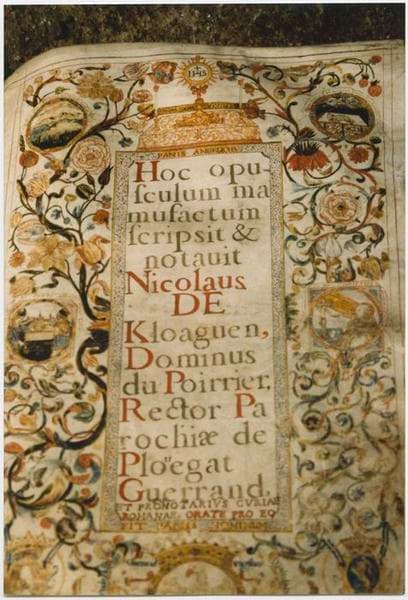 IHS
PANIS ANGELICUS
Hoc opu-
sculum ma
nufactum
scripsit &
notauit
Nicolaus
DE
Kloaguen,
Dominus
du Poirrier,
Rector Pa
rochiæ de
Ploëgat
Guerrand,
ET PRONOTARIUS CURIAE
ROMANAE ORATE PRO EO